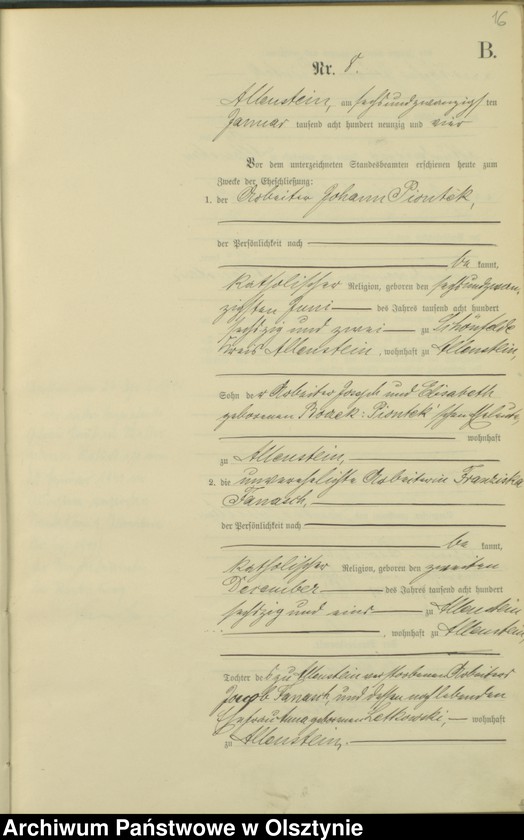 16
B.
Nr. 8.
Allenstein, am sechsundzwanzigsten
Januar tausend acht hundert neunzig und vier
Vor dem unterzeichneten Standesbeamten erschienen heute zum
Zwecke der Eheschließung:
1. der Arbeiter Johann Piontek,
der Persönlichkeit nach
be kannt,
katholischer Religion, geboren den sechsundzwan-
zigsten Juni des Jahres tausend acht hundert
sechzig und zwei zu Schönfelde
Kreis Allenstein, wohnhaft zu Allenstein,
Sohn der Arbeiter Joseph und Elisabeth
geborenen Piontek'schen Eheleute,
wohnhaft
zu Allenstein,
2. die unverehelichte Arbeiterin Franziska
Fanasch,
der Persönlichkeit nach
be kannt,
katholischer Religion, geboren den zweiten
December des Jahres tausend acht hundert
sechzig und eins zu Allenstein
, wohnhaft zu Allenstein,
Tochter des zu Allenstein verstorbenen Arbeiters
Jacob Fanasch, und dessen nachlebenden
Ehefrau Anna geborenen Letkowski, wohnhaft
zu Allenstein.
Archiwum Państwowe w Olsztynie